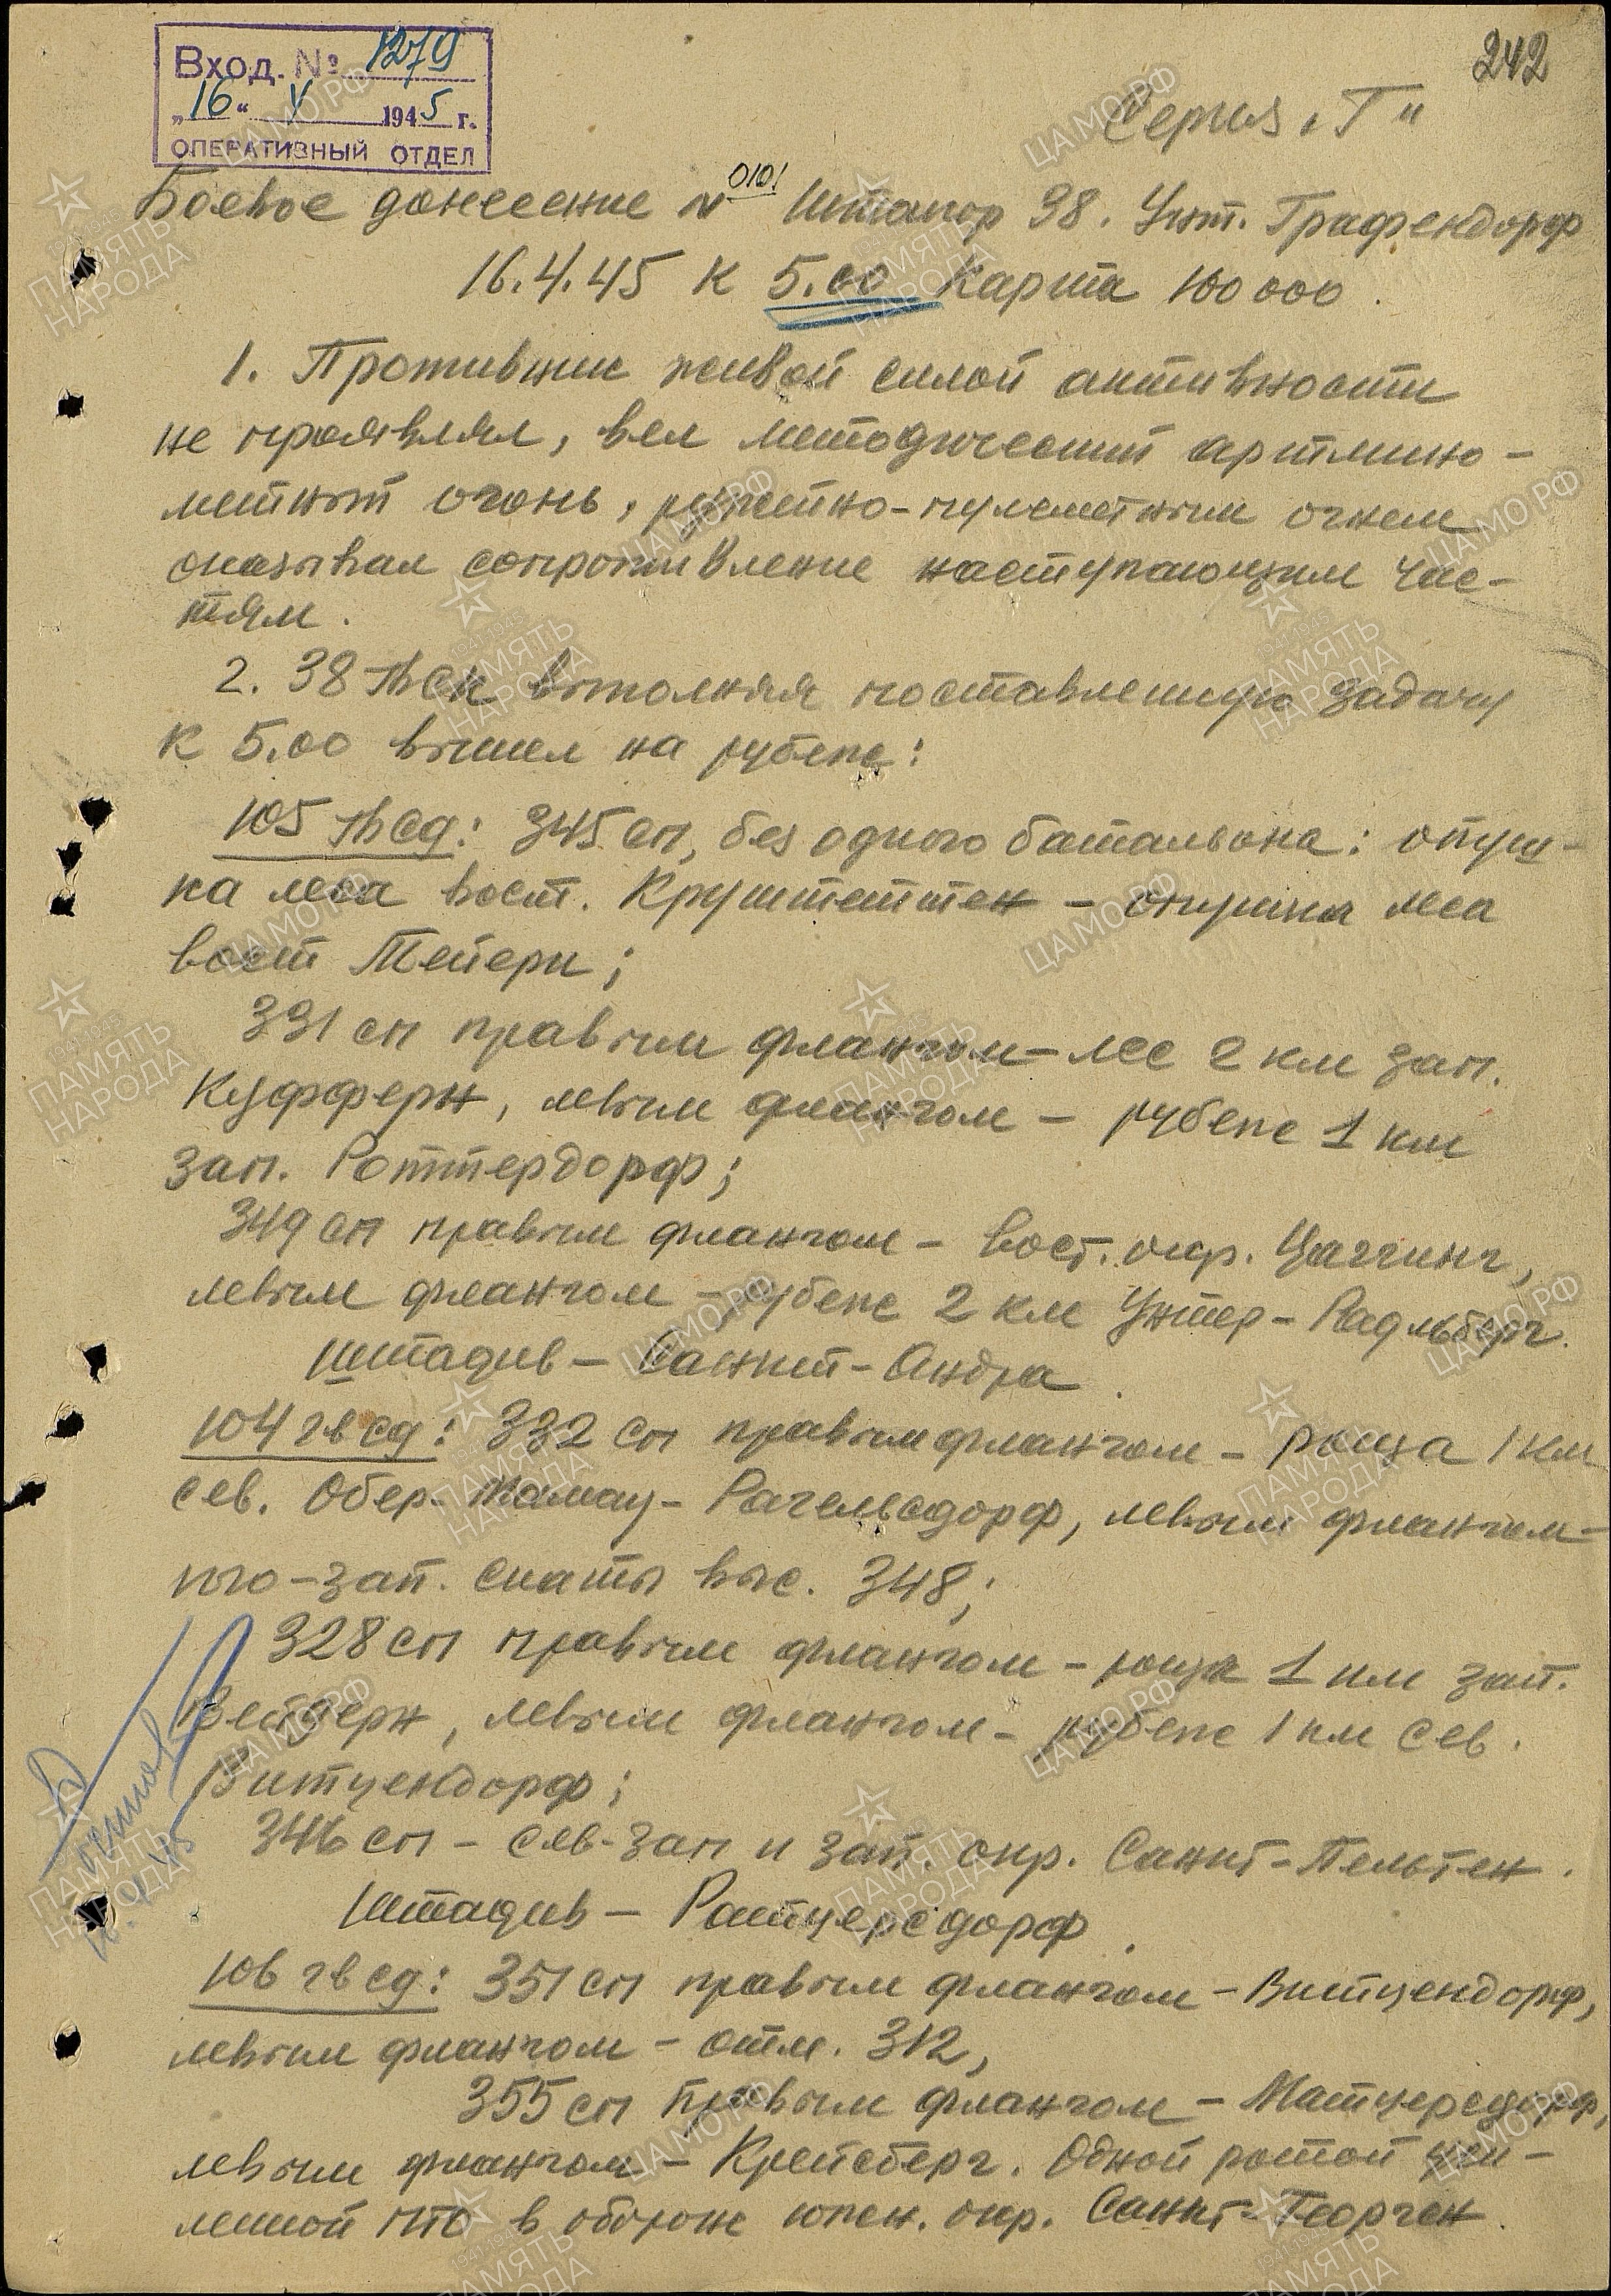 242
Вход. № 1279
„16“ V 1945 г.
ОПЕРАТИВНЫЙ ОТДЕЛ
Серия „Г“
Боевое донесение № 0101 Штакор 38. Унт. Графендорф
16.4.45 к 5.00 Карта 100 000.
1. Противник живой силой активности
не проявлял, вел методический артмино-
метный огонь, ружейно-пулеметным огнем
оказывал сопротивление наступающим час-
тям.
2. 38 гвск выполняя поставленную задачу
к 5.00 вышел на рубеже:
105 гвсд: 345 сп, без одного батальона: опуш-
ка леса вост. Круштеттен – опушка леса
вост Тейерн;
331 сп правым флангом – лес 2 км зап.
Куфферн, левым флангом – рубеже 1 км
зап. Роттердорф;
349 сп правым флангом – вост. окр. Цаггинг,
левым флангом – рубеже 2 км Унтер-Радльберг.
Штадив – Санкт-Андра.
104 гвсд: 332 сп правым флангом – роща 1 км
сев. Обер-Мамау-Рагельсдорф, левым флангом –
юго-зап. скаты выс. 348;
328 сп правым флангом – роща 1 км зап.
Вейтерн, левым флангом – рубеже 1 км сев.
Витцендорф;
346 сп – сев-зап и зап. окр. Санкт-Пельтен.
Штадив – Ратцерсдорф.
106 гвсд: 351 сп правым флангом – Витцендорф,
левым флангом – отм. 312,
355 сп правым флангом – Матцерсдорф,
левым флангом – Крейсберг. Одной ротой уси-
ленной ПТО в обороне южн. окр. Санкт-Георген.
ПАМЯТЬ НАРОДА
ЦАМО.РФ